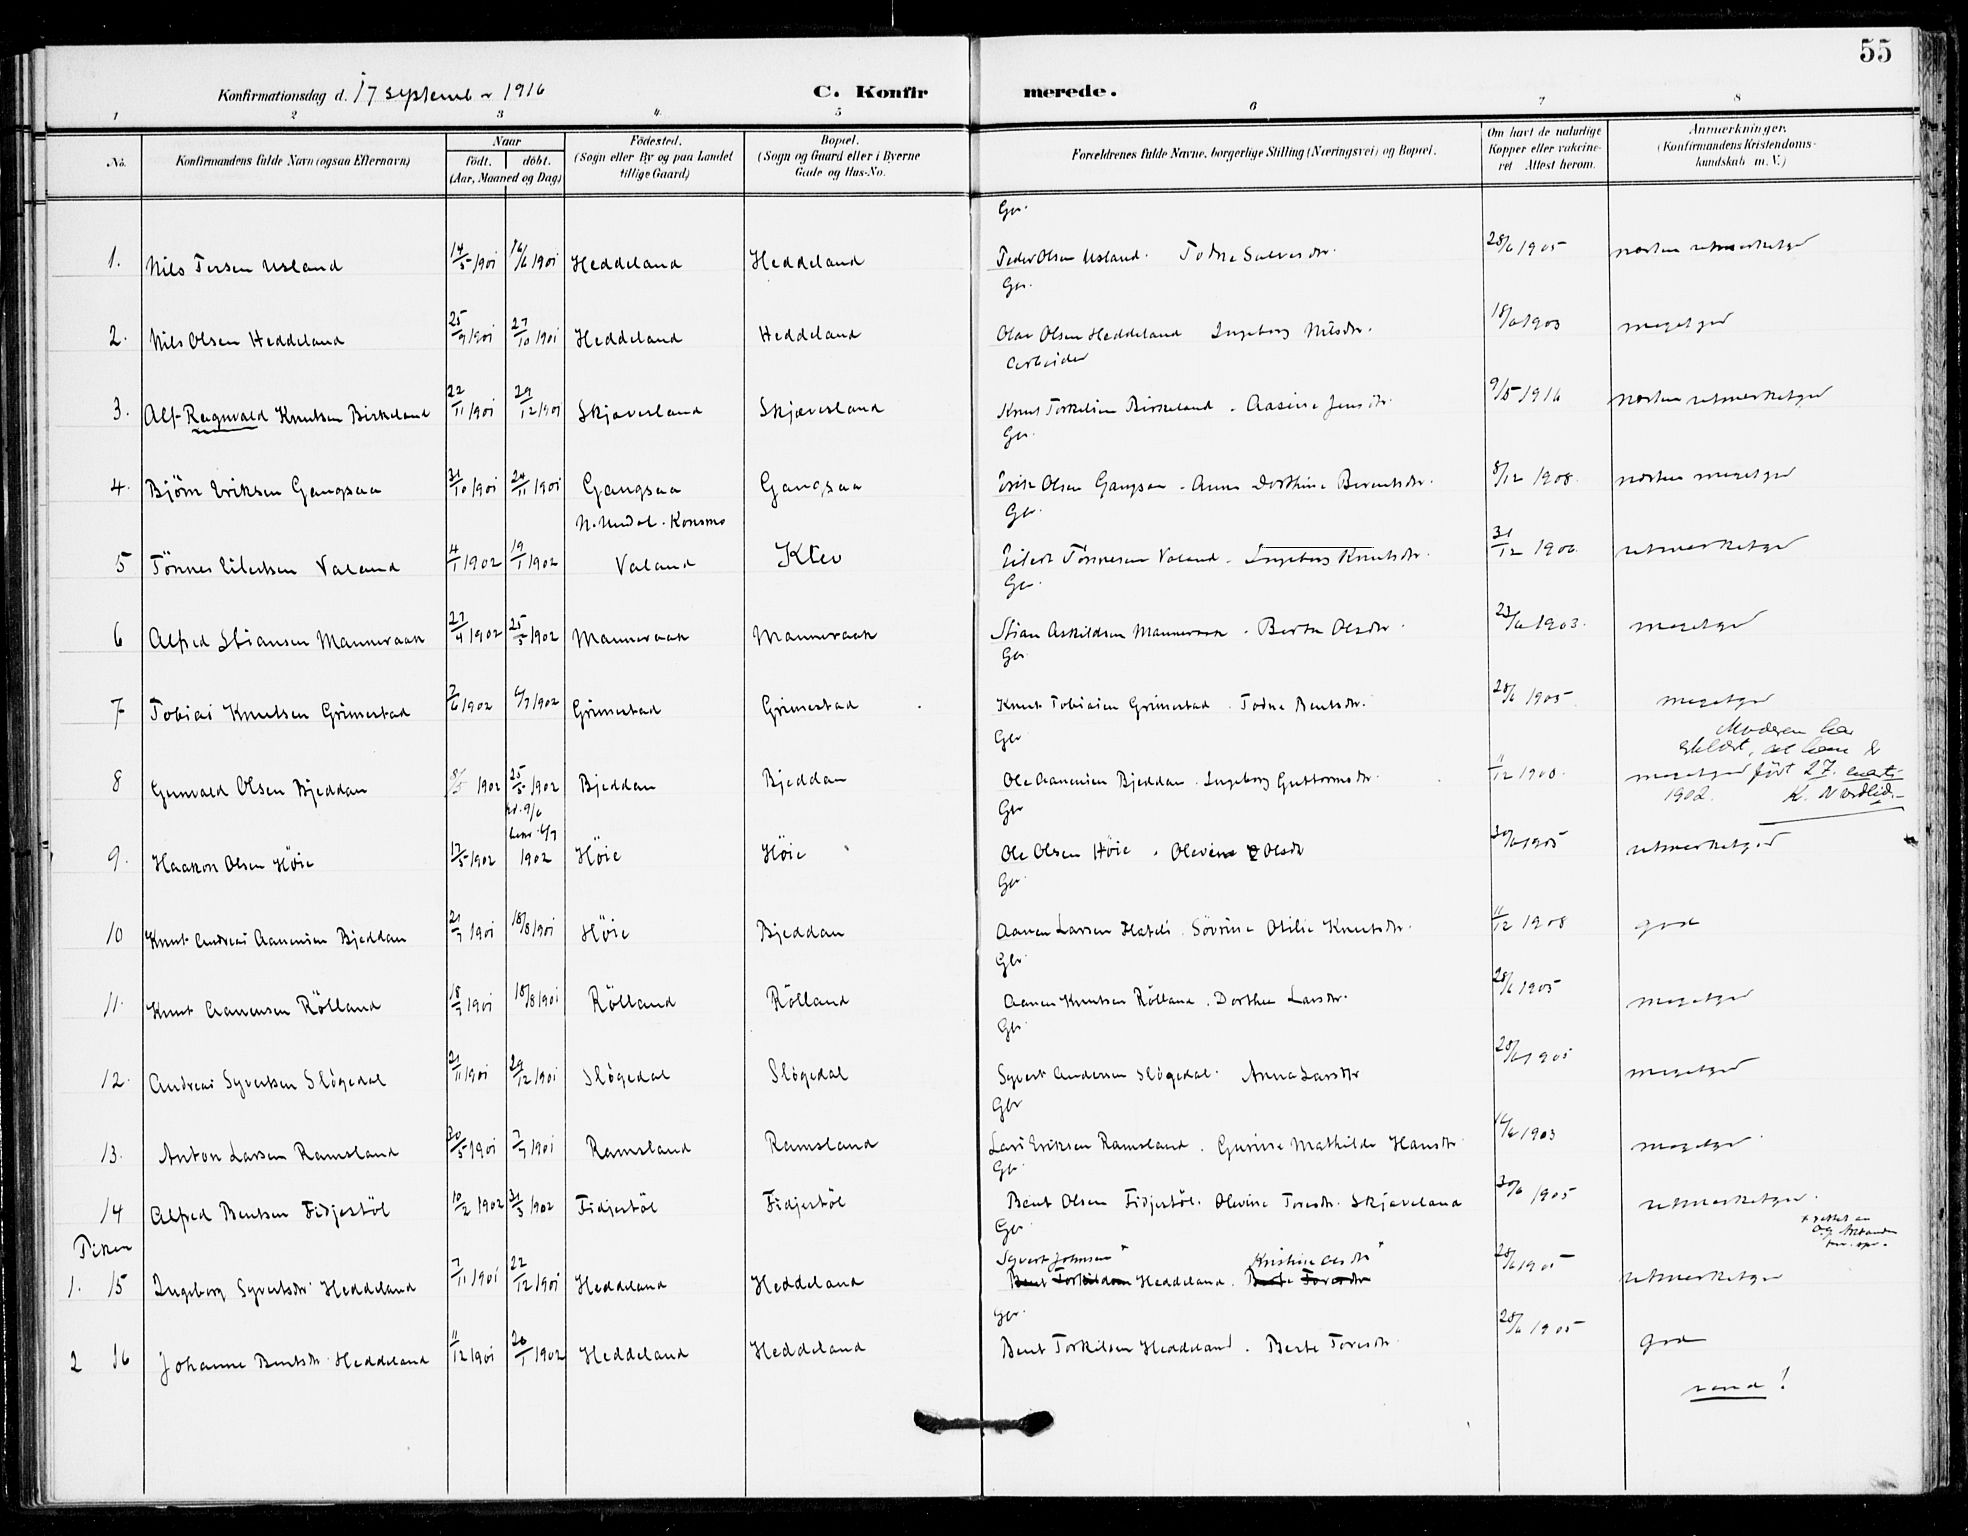 55
Konfirmationsdag d. 17 septemb 1916 C. Konfirmerede.
1 2 3 4. 5 6 7 8
No. Konfirmandens fulde Navn (ogsaa Efternavn) Naar født. døbt. (Aar, Maaned og Dag) Fødested. (Sogn eller By og paa Landet tillige Gaard) Bopæl. (Sogn og Gaard eller i Byerne Gade og Hus-No. Forældrenes fulde Navne, borgerlige Stilling (Næringsvei) og Bopæl. Om havt de naturlige Kopper eller vakcineret Attest herom. Anmærkninger. (Konfirmandens Kristendomskundskab m. V.)
Gbr.
1. Nils Tersen Usland 14/5 1901 16/6 1901 Heddeland Heddeland Peder Olsen Usland. Todne Salvesdtr. 28/6 1905 næsten utmerketgod
Gbr.
2. Nils Olsen Heddeland 25/9 1901 27/10 1901 Heddeland Heddeland Olav Olsen Heddeland Ingeborg Nilsdtr. 18/6 1903 megetgod
Arbeider
3. Alf Ragnvald Knutsen Birkeland 22/11 1901 29/12 1901 Skjævesland Skjævesland Knut Torkelsen Birkeland. Aasine Jensdtr. 9/5 1916 næsten utmerketgod
Gbr.
4. Björn Eriksen Gangsaa 31/10 1901 24/11 1901 Gangsaa Gangsaa Erik Olsen Gangsaa. Anne Dorthine Berentsdtr. 8/12 1908. næsten megetgod
N. Undal. Konsmo Gbr.
5 Tönnes Eilertsen Valand 4/1 1902 19/1 1902 Valand Klev Eilert Tönnesen Valand. Ingeborg Knutsdtr. 31/12 1906 utmerketgod
Gbr.
6 Alfred Stiansen Manneraak 27/4 1902 25/5 1902 Manneraak Manneraak Stian Askildsen Manneraak. Berta Olsdtr. 23/6 1903. megetgod
Gbr.
7 Tobias Knutsen Grimestad 2/6 1902 6/7 1902 Grimestad Grimestad Knut Tobiasen Grimestad. Todne Bentsdtr. 28/6 1905. megetgod
Gbr Moderen har
erklært, at han er
8 Gunvald Olsen Bjeddan 8/5 1902 25/5 1902 Bjeddan Bjeddan Ole Aanensen Bjeddan. Ingeborg Guttormsdtr. 11/12 1908. megetgod født 27. marts
1902. K. Nordlid.
hd. 9/6 Gbr
bekr. 6/7
9. Haakon Olsen Höie 17/5 1902 1902 Höie Höie Ole Olsen Höie. Olevine Olsdtr 30/6 1905 utmerketgod
Gbr.
10 Knut Andreas Aanensen Bjeddan 21/7 1901 18/8 1901 Höie Bjeddan Aanen Larsen. Sövrine Otilie Knutsdtr. 11/12 1908 god
Gbr.
11. Knut Aanensen Rölland 18/7 1901 18/8 1901 Rölland Rölland Aanen Knutsen Rölland. Dorthea Larsdtr. 28/6 1905 megetgod
Gbr.
12. Andreas Syvertsen Slögedal 21/11 1901 29/12 1901 Slögedal Slögedal Syvert Andersen Slögedal. Anna Larsdtr 28/6 1905 megetgod
Gbr
13. Anton Larsen Ramsland 30/5 1901 7/7 1901 Ramsland Ramsland Lars Eriksen Ramsland. Gurine Mathilde Hansdtr 16/6 1903 megetgod
Gbr.
14 Alfred Bentsen Fidjestöl 10/2 1902 31/3 1902 Fidjestöl Fidjestöl Bent Olsen Fidjestöl. Olevine Toresdtr. Skjæveland 30/6 1905 utmerketgod.
Piker Gbr + rettet av
Syvert Johnsen + Kristine Olsdtr +
1. 15 Ingeborg Syvertsdtr. Heddeland 7/11 1901 22/12 1901 Heddeland Heddeland Bent Torkildsen Heddeland. Berte Toresdtr 28/6 1905 utmerketgod
Gbr.
2 16 Johanne Bentsdtr. Heddeland 11/12 1901 26/1 1902 Heddeland Heddeland Bent Torkilsen Heddeland. Berte Toresdtr 28/6 1905 god